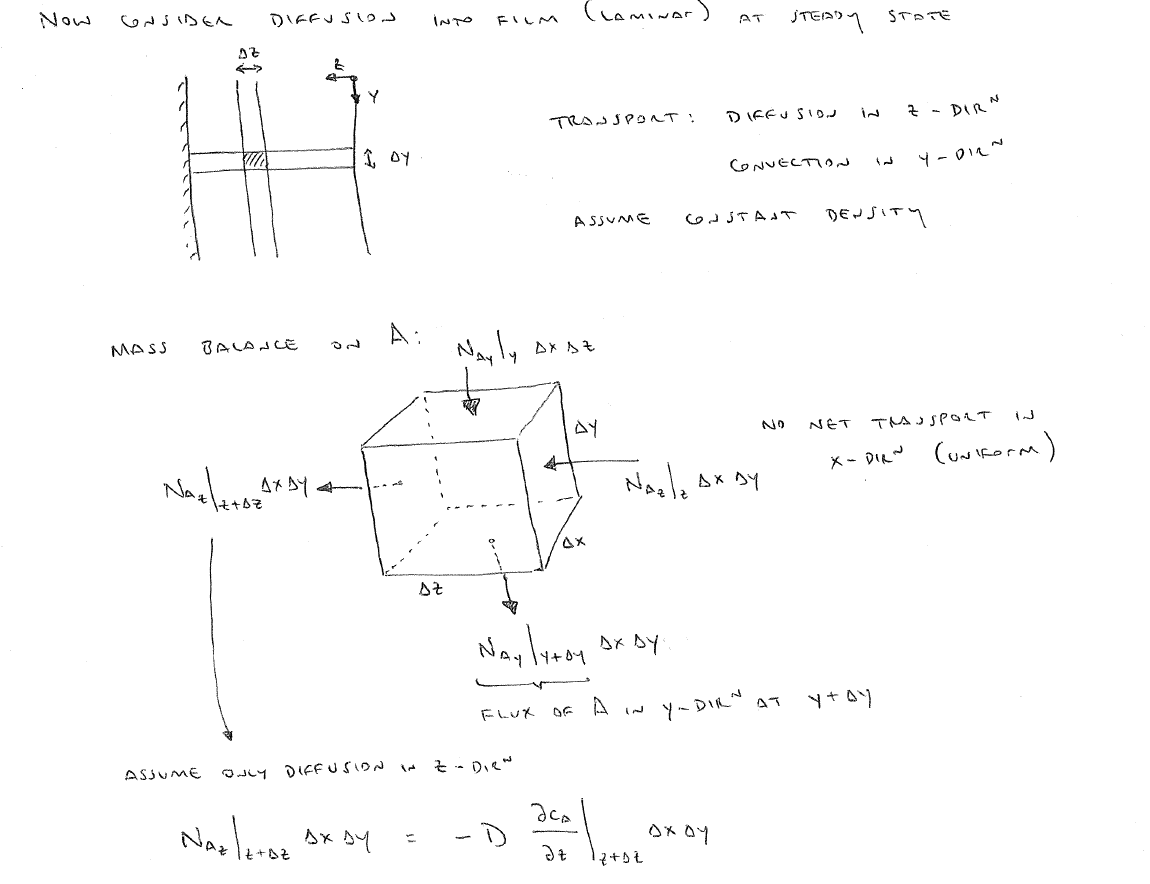 NOW CONSIDER DIFFUSION INTO FILM (LAMINAR) AT STEADY STATE
ΔZ
Z
Y
ΔY
TRANSPORT: DIFFUSION IN Z-DIRᴺ
CONVECTION IN Y-DIRᴺ
ASSUME CONSTANT DENSITY
MASS BALANCE ON A:
N_Ay|_y ΔX ΔZ
ΔY
NO NET TRANSPORT IN
X-DIRᴺ (UNIFORM)
N_Az|_z+Δz ΔX ΔY
N_Az|_z ΔX ΔY
ΔX
ΔZ
N_Ay|_y+Δy ΔX ΔY
FLUX OF A IN Y-DIRᴺ AT Y+ΔY
ASSUME ONLY DIFFUSION IN Z-DIRᴺ
N_Az|_z+Δz ΔX ΔY = -D ∂C_A/∂z|_z+Δz ΔX ΔY